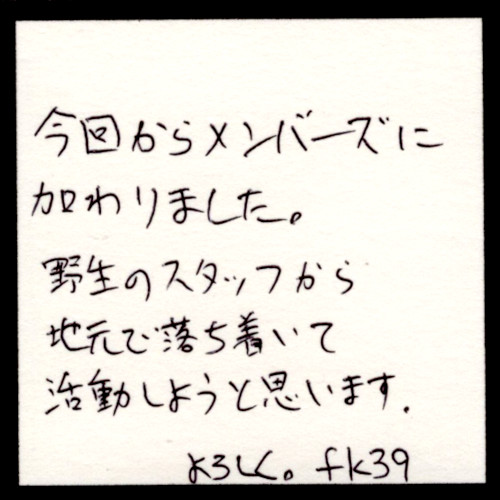 今回からメンバーズに
加わりました。
野生のスタッフから
地元で落ち着いて
活動しようと思います.
よろしく。fk39